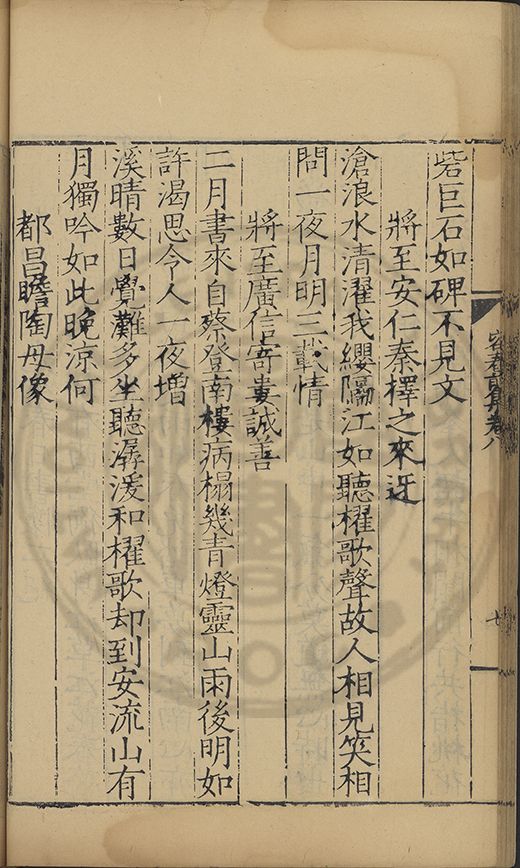 砦巨石如碑不見文
將至安仁秦檡之來迓
滄浪水清濯我纓隔江如聽櫂歌聲故人相見笑相
問一夜月明三載情
將至廣信寄婁誠善
二月書來自蔡登南樓病榻幾青燈靈山雨後明如
許渴思令人一夜增
溪晴數日覺灘多坐聽潺湲和櫂歌却到安流山有
月獨吟如此晚涼何
都昌瞻陶母像
卷八
七